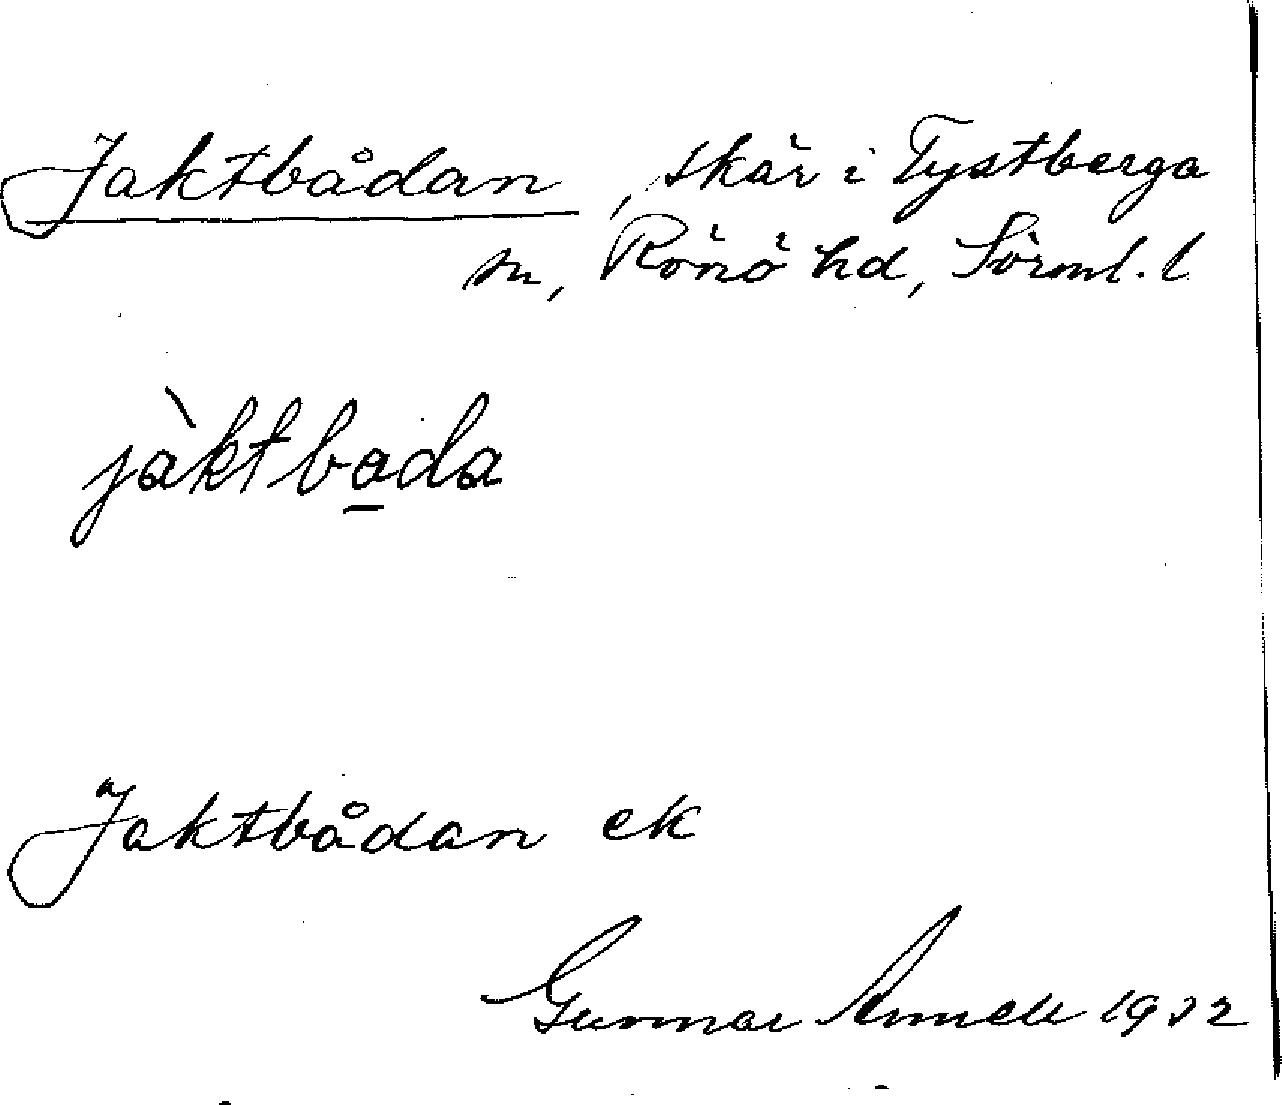 Jaktbådan, skär i Tystberga
sn, Rönö hd, Sörml. l
jàktbada
Jaktbådan ek
Gunnar Annell 1932